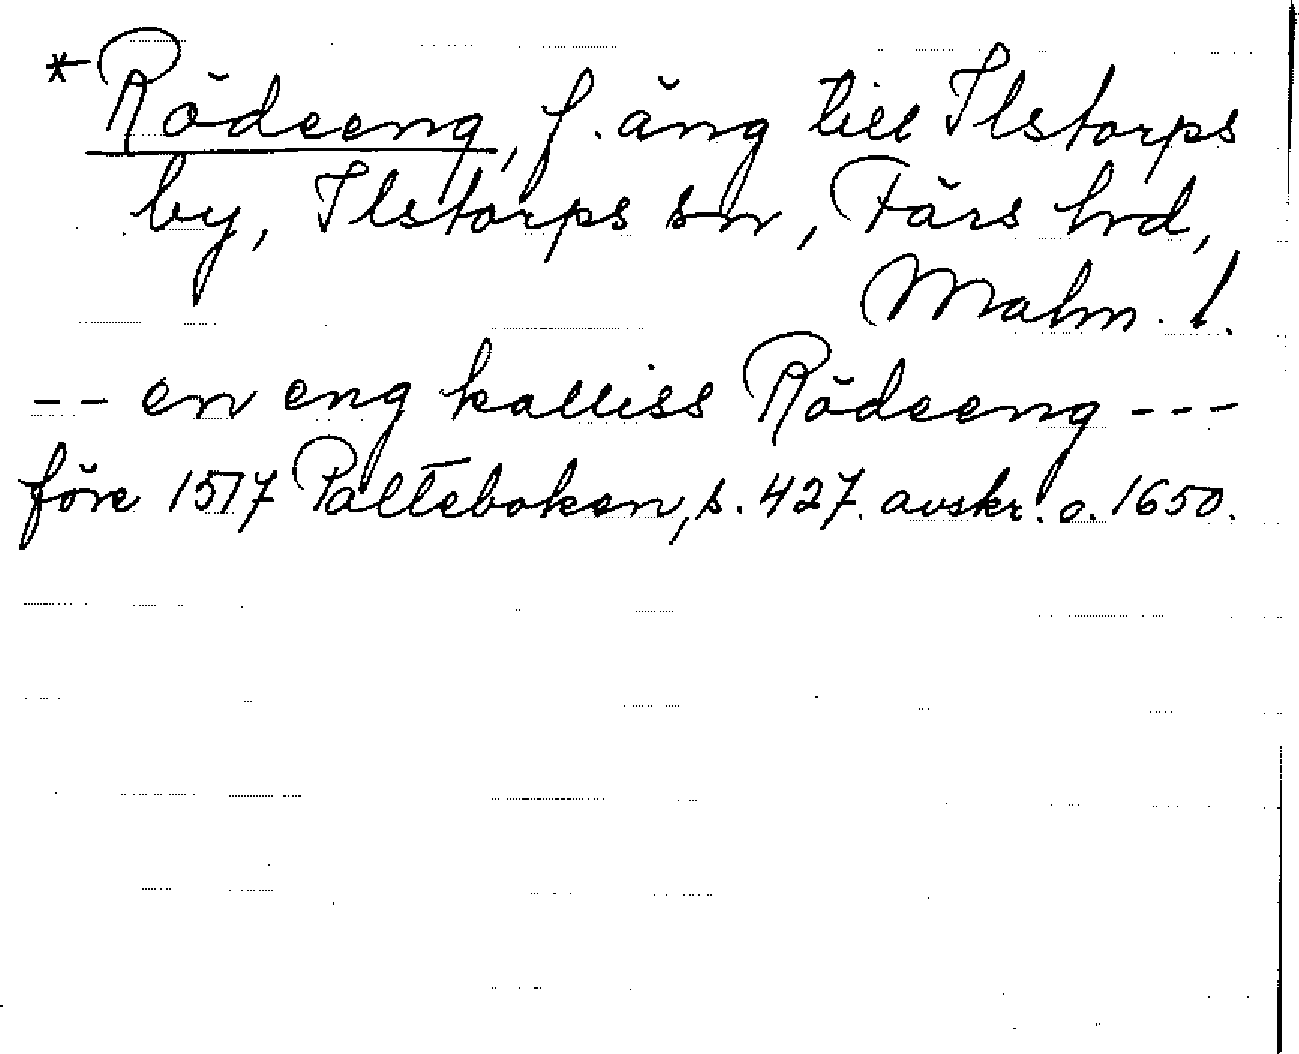 *Rödeeng, f. äng till Ilstorps
by, Ilstorps sn, Färs hrd,
Malm. l.
-- en eng kalliss Rödeeng ---
före 1517 Palteboken, s. 427. avskr. o. 1650.